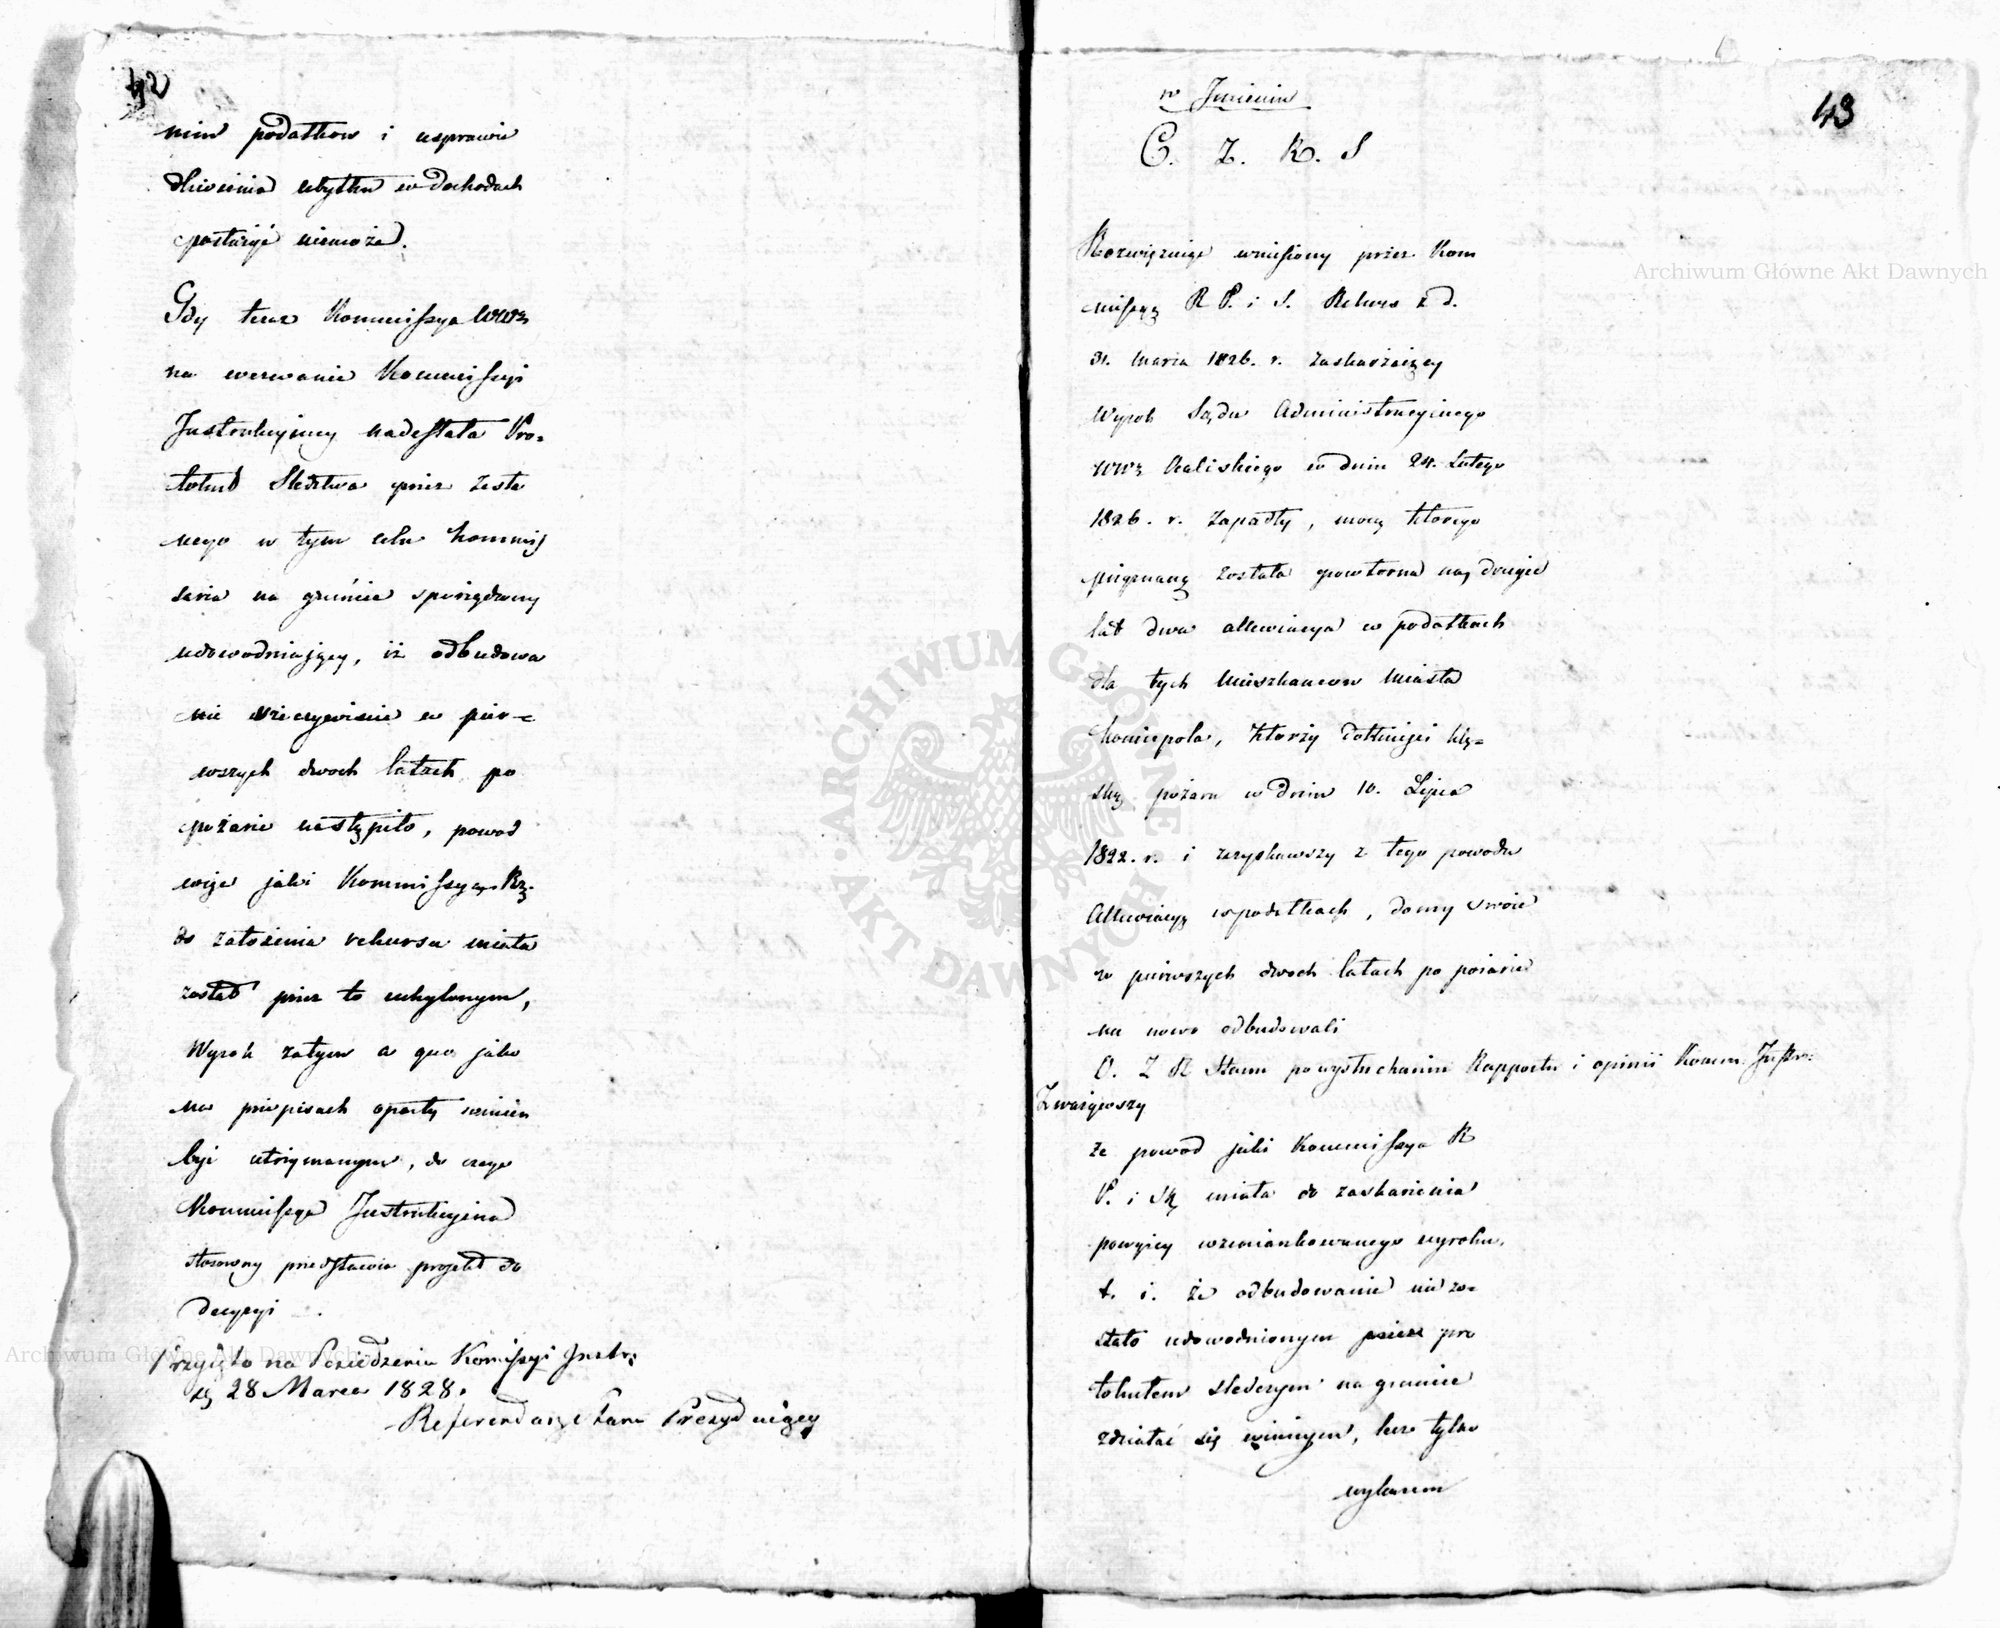 42
niu podatkow i usprawie
dliwienia ubytku w dochodach
postąpić niemoże.
Gdy teraz Kommissya WWa
na wezwanie Kommissyi
Instrukcyiney nadesłała Pro-
tokuł Sledztwa przez zesła
nego w tym celu Kommis
sarza na gruncie sporządzony
udowodniaiący, iż odbudowa
nie rzeczywiście w pier-
wszych dwoch latach po
pożarze nastąpiło, powod
więc jaki Kommissya Rz.
do założenia rekursu miała
został przez to uchylonym,
Wyrok zatym a quo jako
na przepisach oparty winien
być utrzymanym, do czego
Kommissya Instrukcyina
stosowny przedstawia projekt do
decyzyi
Przyięto na Posiedzeniu Komissyi Instr:
dą 28 Marca 1828.
Referendarz Stanu Prezyduiący
43
w Imieniu
C. Z. K. S
Rozwiązuiąc wniesiony przez Kom
missyą R P. i S. Rekurs z d.
31. Marca 1826. r. zaskarżaiący
Wyrok Sądu Administracyinego
WWa Kaliskiego w dniu 24. Lutego
1826. r. zapadły, mocą którego
przyznaną została powtorna na drugie
lat dwa allewiacya w podatkach
dla tych Mieszkancow Miasta
Koniecpola, którzy dotknięci klę-
ską pożaru w dniu 10. Lipca
1822. r. i uzyskawszy z tego powodu
Allewiacyą w podatkach, domy swoie
w pierwszych dwoch latach po pożarze
na nowo odbudowali
O. Z R Stanu po wysłuchaniu Rapportu i opinii Komm. Instr:
Zważywszy
że powod jaki Kommissya R
P. i Sk miała do zaskarżenia
powyżey wzmiankowanego wyroku,
t. i. że odbudowanie nie zo-
stało udowodnionym przez pro
tokułem sledczym na gruncie
zdziałać się winnym, lecz tylko
wykazem
Archiwum Główne Akt Dawnych
Archiwum Główne Akt Dawnych
ARCHIWUM GŁÓWNE AKT DAWNYCH